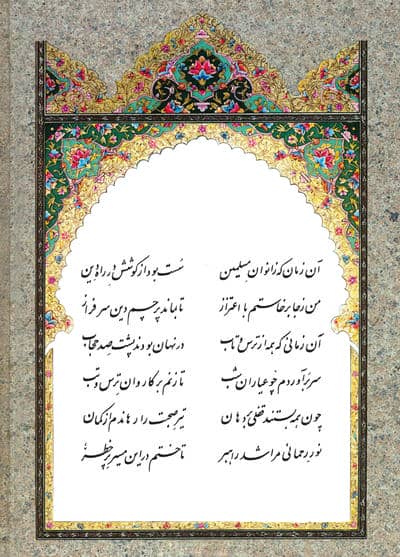 آن زمان که زانوان مسلمین سست بود از کوشش در راه دین
من ز جا برخاستم با اعتزاز تا بماند پرچم دین سرفراز
آن زمانی که همه از ترس و تاب در نهان بودند پشت صد حجاب
سر برآوردم چو عیاران شب تا زنم بر کاروان ترس و تب
چون همه بستند قفلی بر دهان تیر صحبت را رهاندم از کمان
نور رحمانی مرا شد راهبر تاختم در این مسیر پر خطر